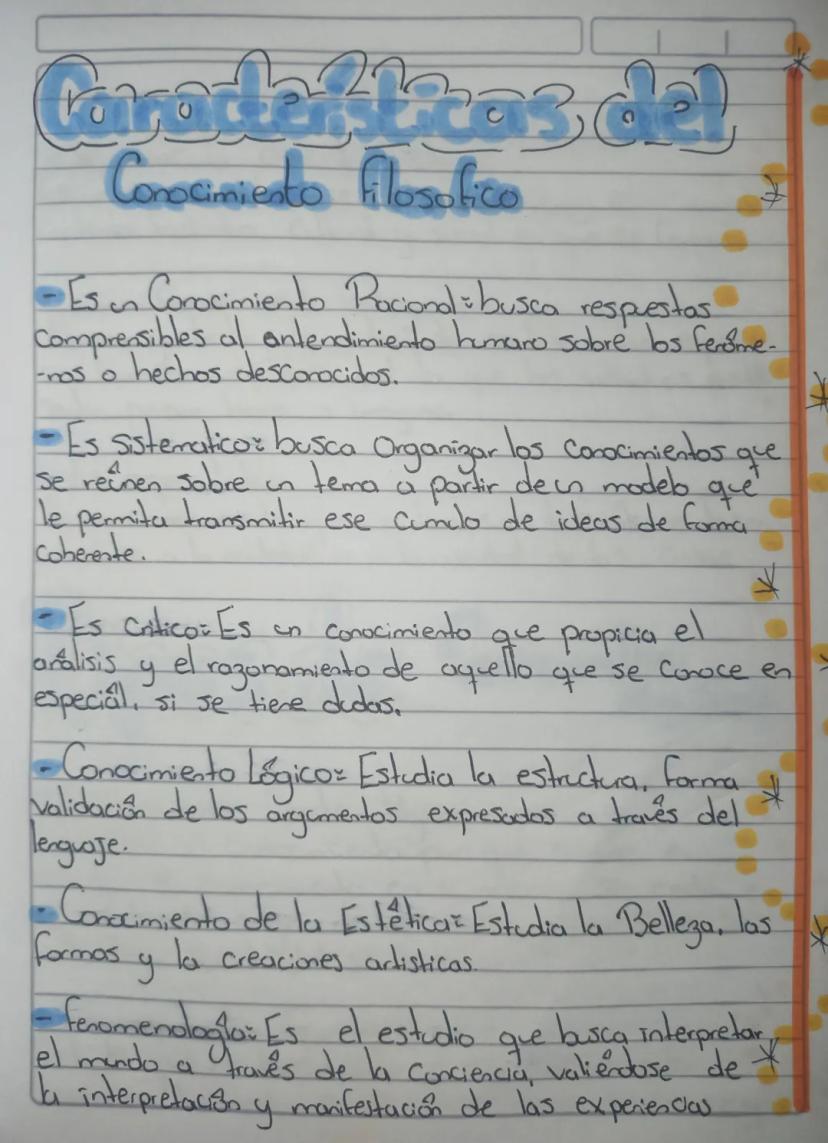 Características del
Conocimiento filosofico
- Es un Conocimiento Racional: busca respuestas
comprensibles al entendimiento humano sobre los fenóme-
-nos o hechos desconocidos.
- Es sistematico: busca Organizar los conocimientos que
se reúnen sobre un tema a partir de un modelo que
le permita transmitir ese cumulo de ideas de forma
coherente.
- Es critico: Es un conocimiento que propicia el
análisis y el razonamiento de aquello que se conoce en
especiál, si se tiene dudas.
- Conocimiento Lógico: Estudia la estructura, forma
validación de los argumentos expresados a través del
lenguaje.
- Conocimiento de la Estética: Estudia la Belleza, las
formas y la creaciones artisticas.
- fenomenología: Es el estudio que busca interpretar
el mundo a través de la conciencia, valiéndose de
la interpretación y manifestación de las experiencias